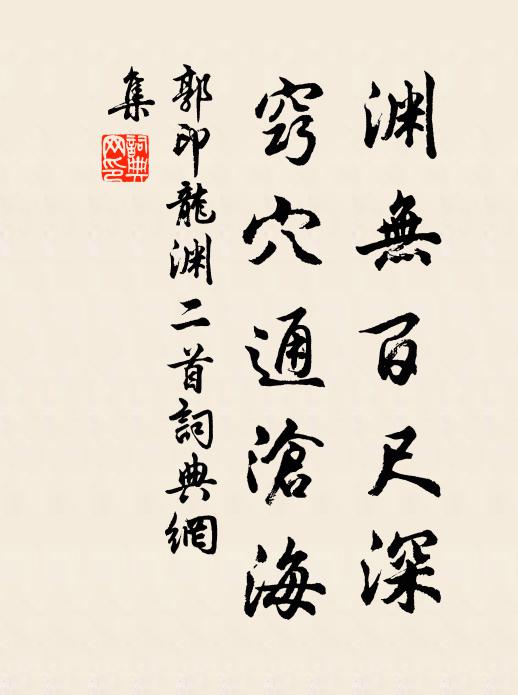 渊無百尺深
窍穴通滄海
郭印龍渊二首詞典網
集
詞典網印